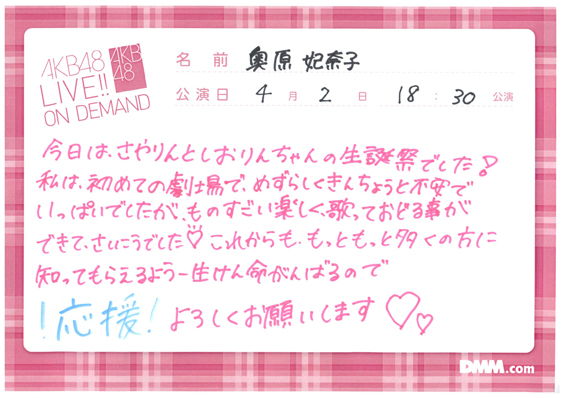 AKB48
LIVE!!
ON DEMAND
AKB
48
名前 奥原 妃奈子
公演日 4月2日 18:30公演
今日は、さやりんとしおりんちゃんの生誕祭でした!
私は、初めての劇場で、めずらしくきんちょうと不安で
いっぱいでしたが、ものすごい楽しく、歌っておどる事が
できて、さいこうでした♡ これからも、もっともっと多くの方に
知ってもらえるよう一生けん命がんばるので
!応援! よろしくお願いします♡♡
DMM.com